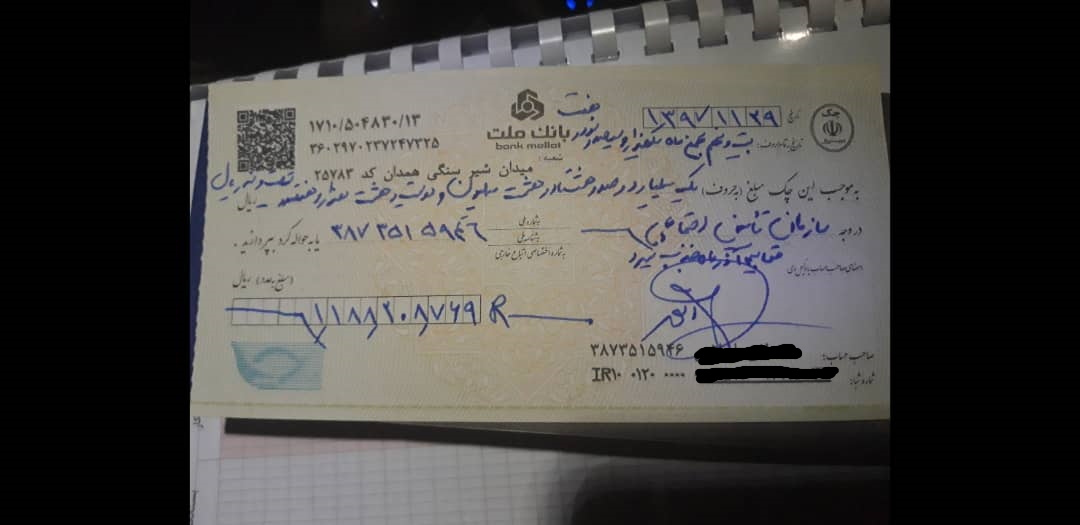 تاریخ ۱۳۹۷/۱۱/۲۹
چک
۱۷۱۰/۵۰۴۸۳۰/۱۳
۳۶۰۲۹۷۰۲۳۷۲۴۷۳۲۵
بانک ملت
bank mellat
هفت
تاریخ (به تمام حروف): بیست و نهم بهمن ماه یکهزار و سیصد و نود
شعبه: میدان شیر سنگی همدان کد ۲۵۷۸۳
به موجب این چک مبلغ (به حروف) یک میلیارد و صد و هشتاد و هشت میلیون و دویست و هشت هزار و هفتصد و شصت و نه ریال
ریال
در وجه سازمان تأمین اجتماعی
به شماره ملی
به شناسه ملی
به شماره اختصاصی اتباع خارجی
۳۸۷۳۵۱۵۹۴۶ یا به حواله کرد بپردازند.
امضای صاحب حساب یا وکیل وی
(مبلغ به عدد) ریال
۱۱۸۸۲۰۸۷۶۹ R
صاحب حساب: ۳۸۷۳۵۱۵۹۴۶
شماره شبا: IR۱۰ ۰۱۲۰ ۰۰۰۰